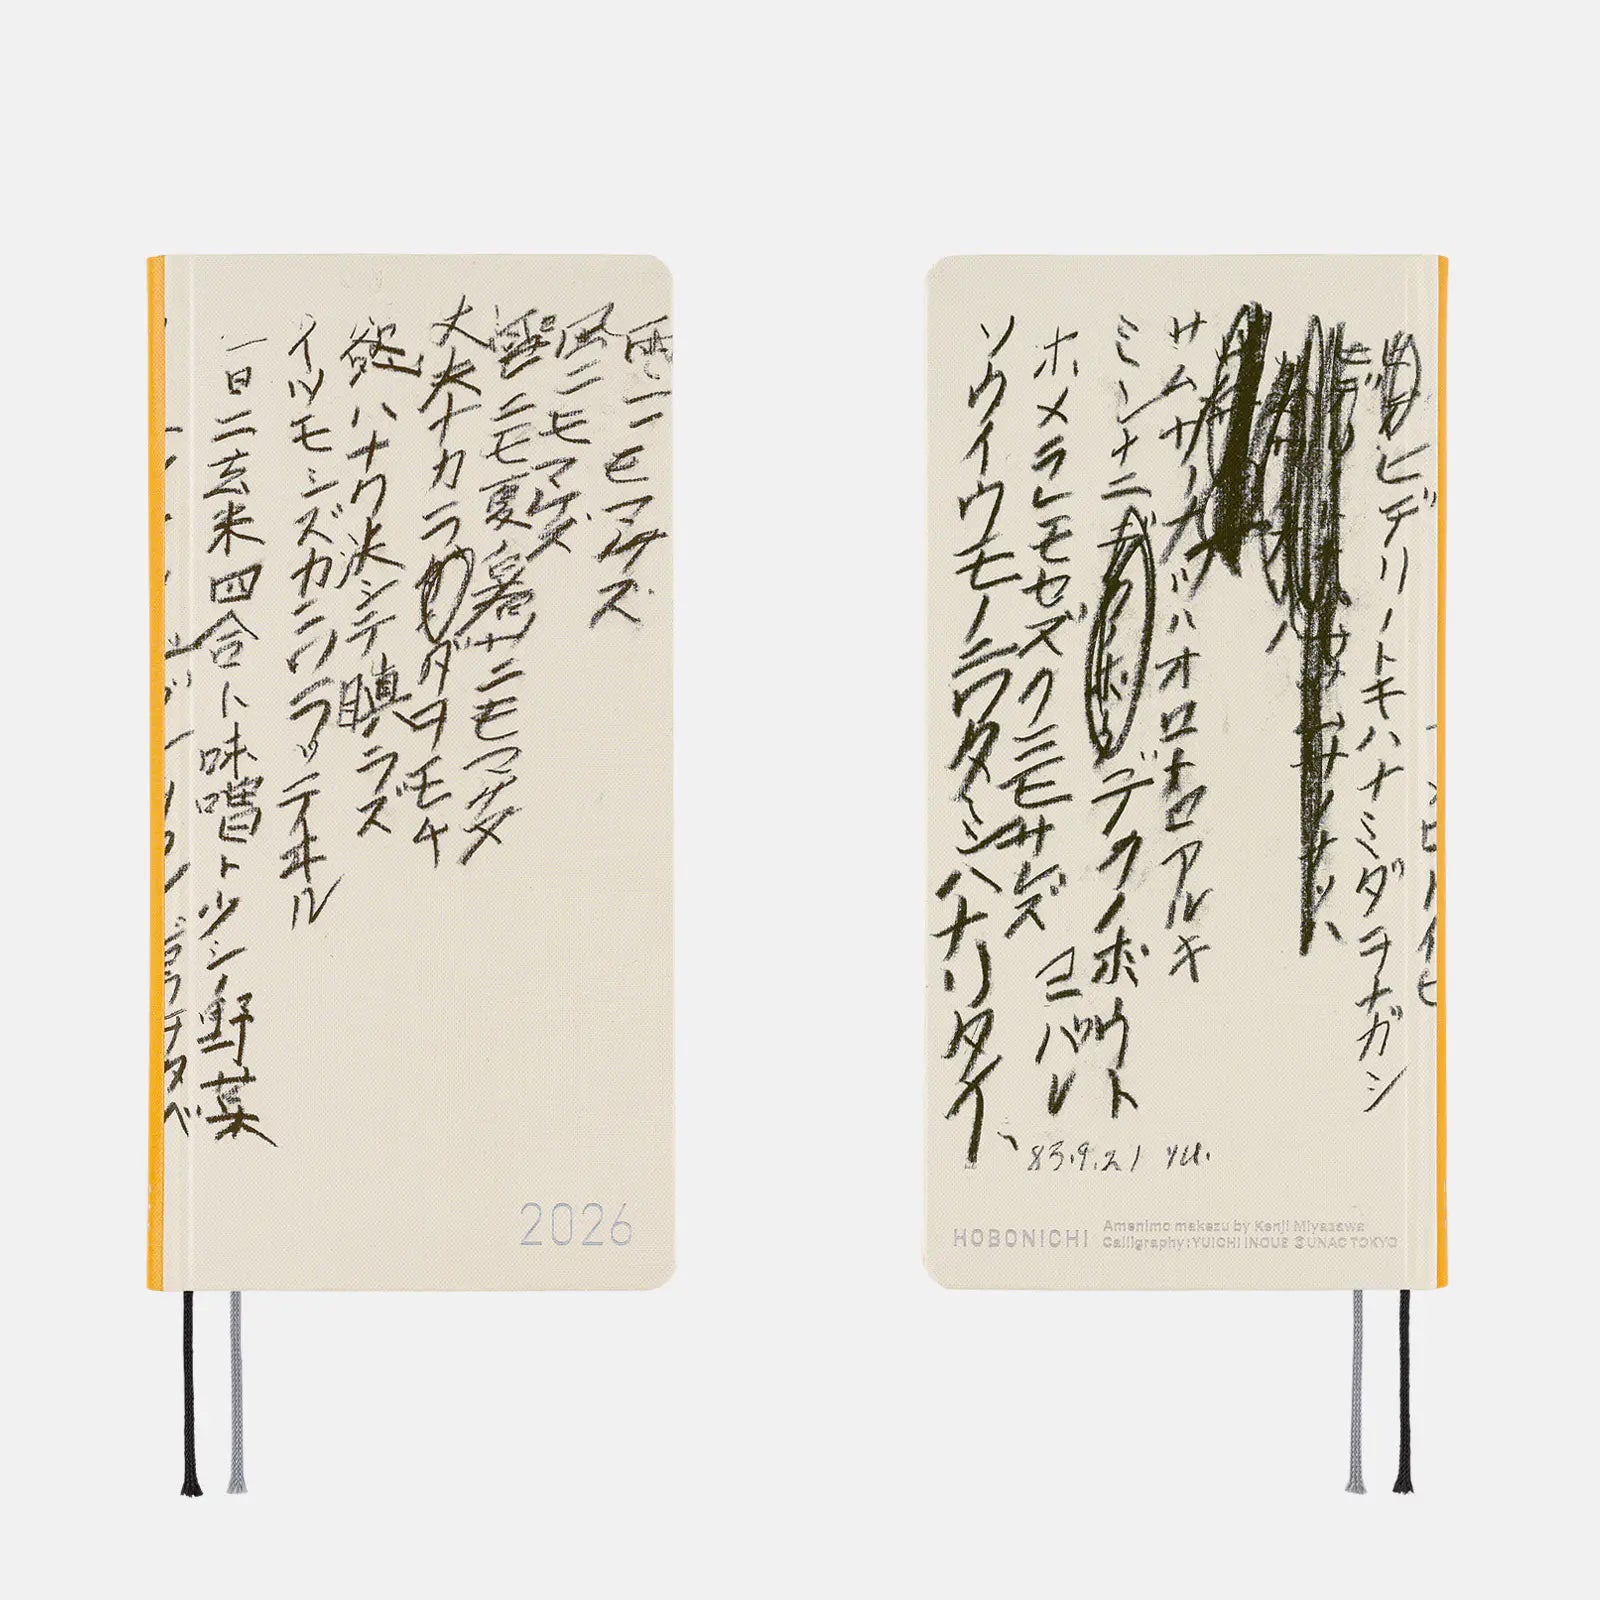 雨ニモマケズ
風ニモマケズ
雪ニモ夏ノ暑サニモマケヌ
丈夫ナカラダヲモチ
慾ハナク決シテ瞋ラズ
イツモシズカニワラッテヰル
一日ニ玄米四合ト味噌ト少シノ野菜
タベ
2026
ヒデリノトキハナミダヲナガシ
サムサノナツハオロオロアルキ
ミンナニデクノボウト
ヨバレ
ホメラレモセズクニモサレズ
ソウイウモノニワタシハナリタイ、
83.9.21 yu.
HOBONICHI
Amenimo makezu by Kenji Miyazawa
Calligraphy:YUICHI INOUE ©UNAC TOKYO